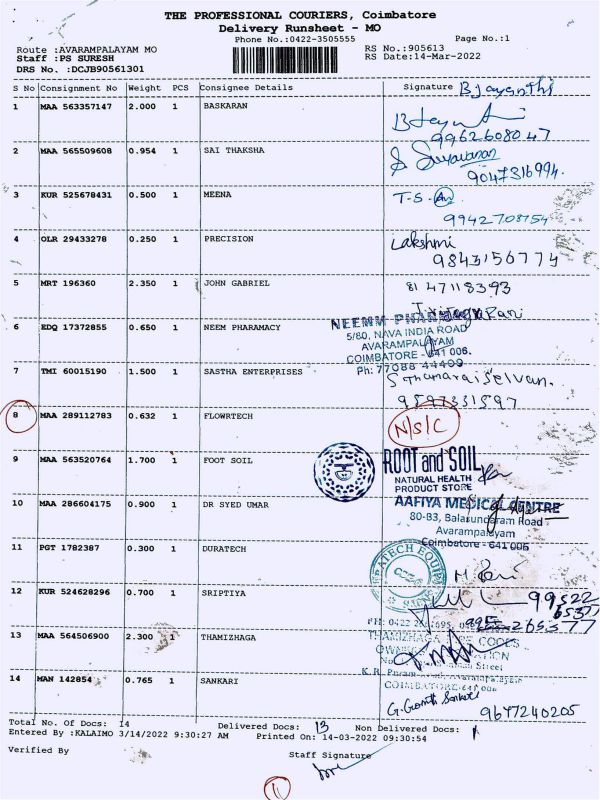 THE PROFESSIONAL COURIERS, Coimbatore
Delivery Runsheet - MO
Phone No.:0422-3505555
Page No.:1
Route :AVARAMPALAYAM MO
RS No.:905613
Staff :PS SURESH
RS Date:14-Mar-2022
DRS No. :DCJB90561301
S No Consignment No Weight PCS Consignee Details Signature B Jayanthi
1 MAA 563357147 2.000 1 BASKARAN
9962608047
2 MAA 565509608 0.954 1 SAI THAKSHA
9047316994.
3 KUR 525678431 0.500 1 MEENA T-S-
9942708754
4 OLR 29433278 0.250 1 PRECISION Lakshmi
9843156774
5 MRT 196360 2.350 1 JOHN GABRIEL 8147118393
6 EDQ 17372855 0.650 1 NEEM PHARAMACY
NEEMM PHARMACY
5/80, NAVA INDIA ROAD
AVARAMPALAYAM
COIMBATORE - 641 006.
Ph: 77088 44409
7 TMI 60015190 1.500 1 SASTHA ENTERPRISES
S Thamarai Selvan.
9597331597
8 MAA 289112783 0.632 1 FLOWRTECH N/S/C
9 MAA 563520764 1.700 1 FOOT SOIL
ROOT and SOIL
NATURAL HEALTH
PRODUCT STORE
10 MAA 286604175 0.900 1 DR SYED UMAR
AAFIYA MEDICAL CENTRE
80-B3, Balasundaram Road
Avarampalayam
Coimbatore - 641 006
11 PGT 1782387 0.300 1 DURATECH
12 KUR 524628296 0.700 1 SRIPTIYA
99522
65377
13 MAA 564506900 2.300 1 THAMIZHAGA
THAMIZHAGA CODES
14 MAN 142854 0.765 1 SANKARI
COIMBATORE-641 006
9677240205
Total No. Of Docs: 14 Delivered Docs: 13 Non Delivered Docs: 1
Entered By :KALAIMO 3/14/2022 9:30:27 AM Printed On: 14-03-2022 09:30:54
Verified By
Staff Signature